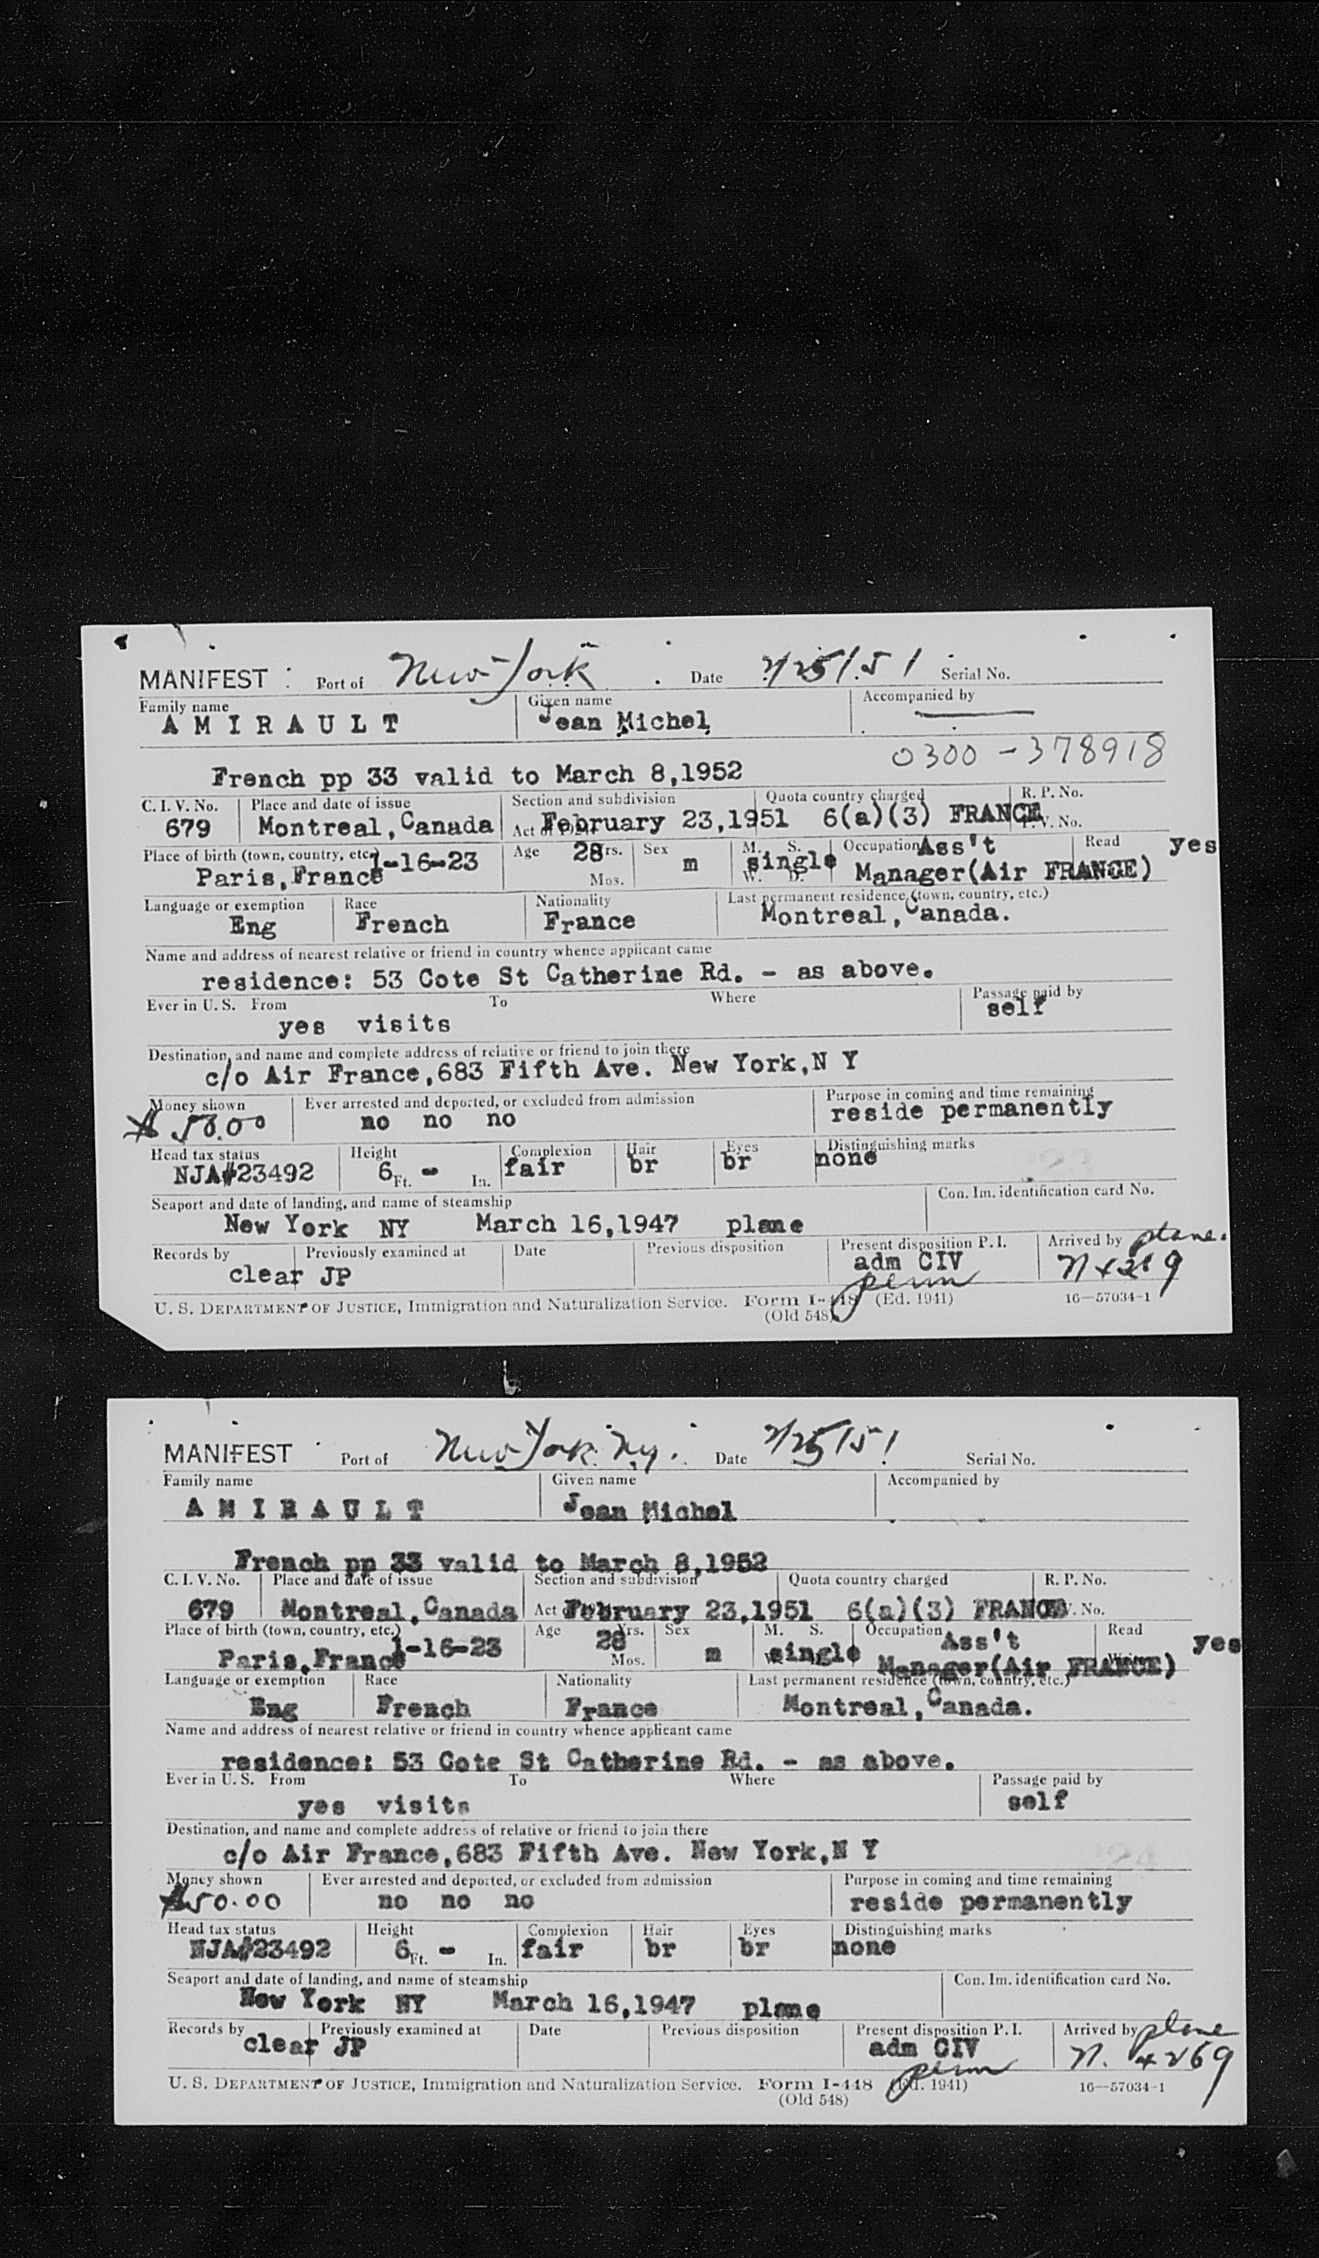 MANIFEST Port of New York Date 2/25/51 Serial No.
Family name Given name Accompanied by
A M I R A U L T Jean Michel
0300-378918
French pp 33 valid to March 8,1952
C. I. V. No. Place and date of issue Section and subdivision Quota country charged R. P. No.
679 Montreal,Canada Act of February 23,1951 6(a)(3) FRANCE P. V. No.
Place of birth (town, country, etc.) Age 28 Yrs. Sex M. S. Occupation Ass't Read yes
Paris,France 1-16-23 Mos. m single W. D. Manager(Air FRANCE)
Language or exemption Race Nationality Last permanent residence (town, country, etc.)
Eng French France Montreal,Canada.
Name and address of nearest relative or friend in country whence applicant came
residence: 53 Cote St Catherine Rd. - as above.
Ever in U. S. From To Where Passage paid by
yes visits self
Destination, and name and complete address of relative or friend to join there
c/o Air France,683 Fifth Ave. New York,N Y
Money shown Ever arrested and deported, or excluded from admission Purpose in coming and time remaining
$50.00 no no no reside permanently
Head tax status Height Complexion Hair Eyes Distinguishing marks
NJA#23492 6 Ft. - In. fair br br none
Seaport and date of landing, and name of steamship Con. Im. identification card No.
New York NY March 16,1947 plane
Records by Previously examined at Date Previous disposition Present disposition P. I. Arrived by plane.
clear JP adm CIV N4269
perm
U. S. DEPARTMENT OF JUSTICE, Immigration and Naturalization Service. Form I-448 (Ed. 1941) 16—57034-1
(Old 548)
MANIFEST Port of New York Ny. Date 2/25/51 Serial No.
Family name Given name Accompanied by
A M I R A U L T Jean Michel
French pp 33 valid to March 8,1952
C. I. V. No. Place and date of issue Section and subdivision Quota country charged R. P. No.
679 Montreal,Canada Act of February 23,1951 6(a)(3) FRANCE P. V. No.
Place of birth (town, country, etc.) Age 28 Yrs. Sex M. S. Occupation Ass't Read yes
Paris,France 1-16-23 Mos. m single Manager(Air FRANCE)
Language or exemption Race Nationality Last permanent residence (town, country, etc.)
Eng French France Montreal,Canada.
Name and address of nearest relative or friend in country whence applicant came
residence: 53 Cote St Catherine Rd. - as above.
Ever in U. S. From To Where Passage paid by
yes visits self
Destination, and name and complete address of relative or friend to join there
c/o Air France,683 Fifth Ave. New York,N Y
Money shown Ever arrested and deported, or excluded from admission Purpose in coming and time remaining
$50.00 no no no reside permanently
Head tax status Height Complexion Hair Eyes Distinguishing marks
NJA#23492 6 Ft. - In. fair br br none
Seaport and date of landing, and name of steamship Con. Im. identification card No.
New York NY March 16,1947 plane
Records by Previously examined at Date Previous disposition Present disposition P. I. Arrived by plane
clear JP adm CIV N. 4269
perm
U. S. DEPARTMENT OF JUSTICE, Immigration and Naturalization Service. Form I-448 (Ed. 1941) 16—57034-1
(Old 548)